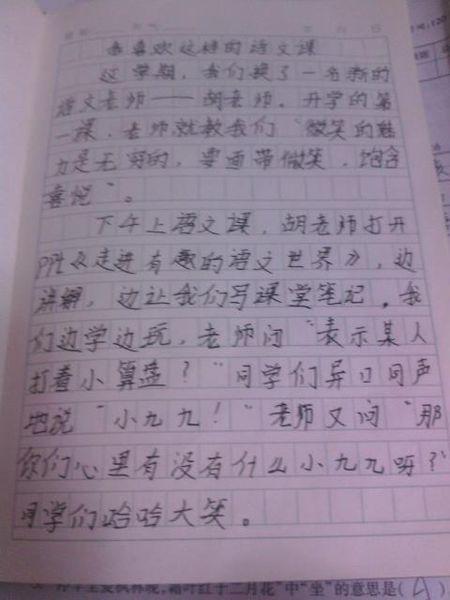 我喜欢这样的语文课
这学期，我们换了一名新的
语文老师——胡老师。开学的第
一课，老师就教我们“微笑的魅
力是无穷的，要面带微笑，饱含
喜悦”。
下午上语文课，胡老师打开
PPt《走进有趣的语文世界》，边
讲解，边让我们写课堂笔记。我
们边学边玩，老师问“表示某人
打着小算盘？”同学们异口同声
地说“小九九！”老师又问“那
你们心里有没有什么小九九呀？”
同学们哈哈大笑。
霜叶红于二月花”中“坐”的意思是(A)